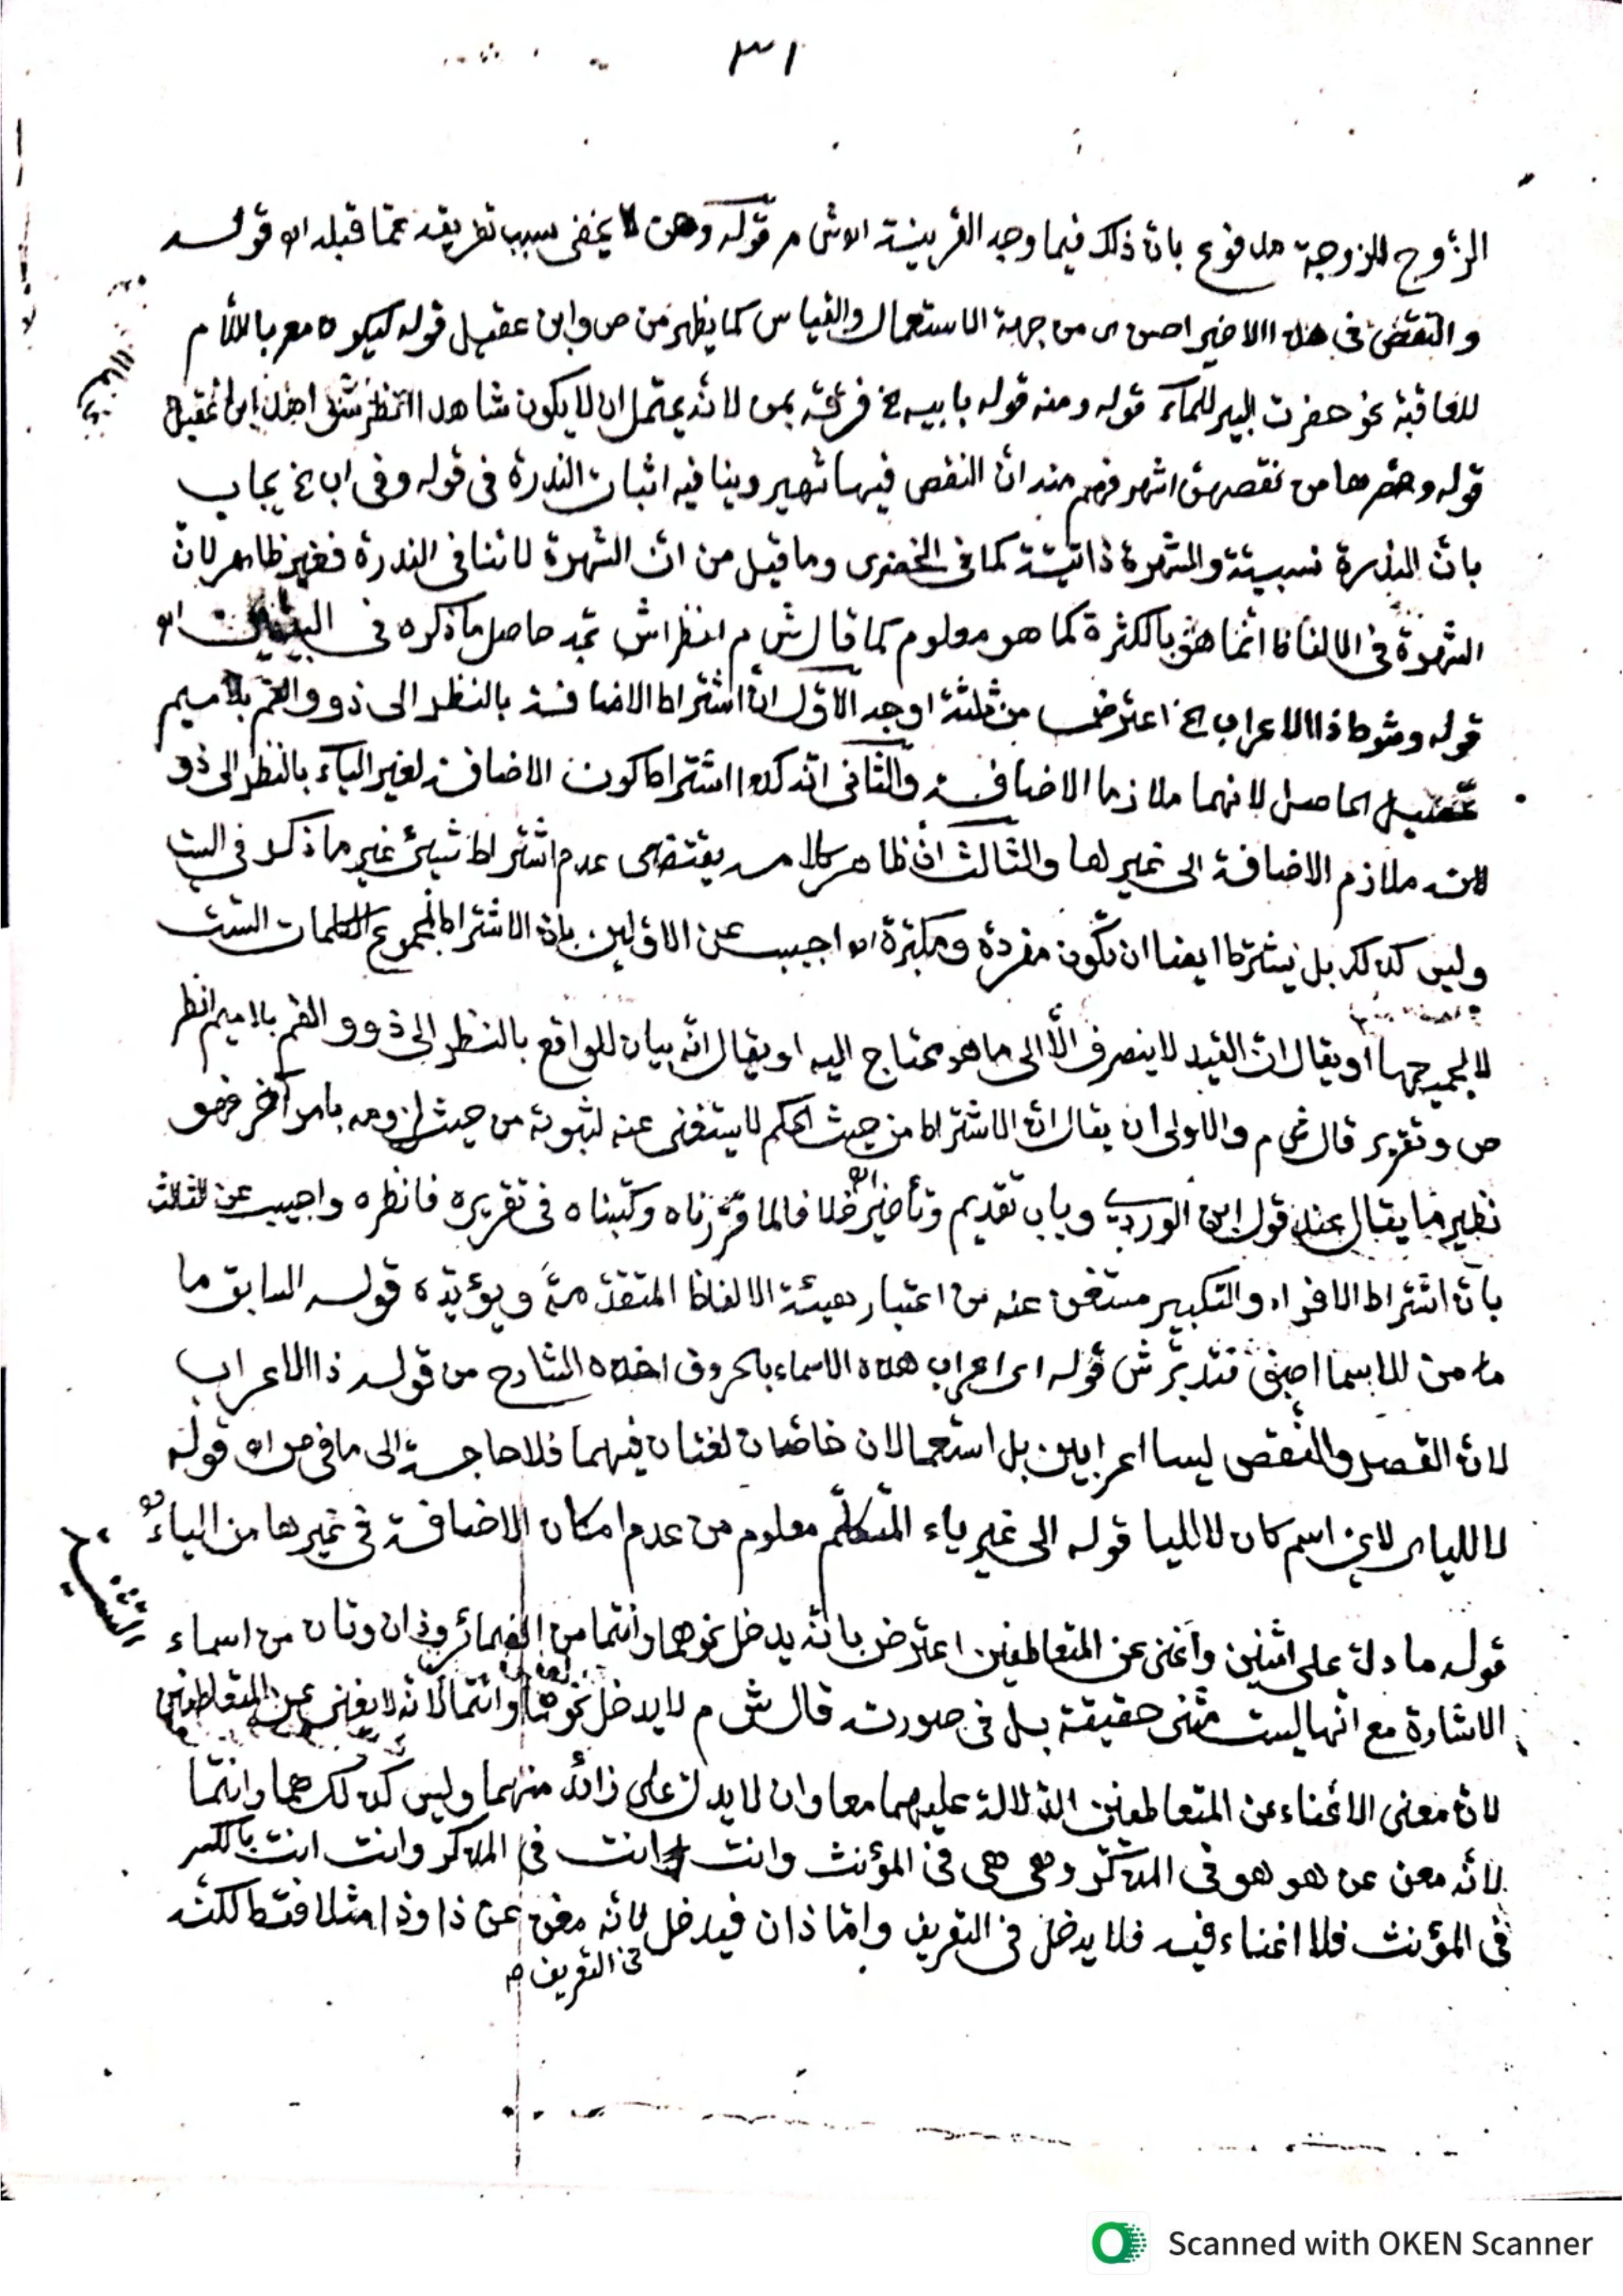 ٣١
الزوج للزوجة مدفوع بان ذلك فيما وجد القرينة اه ش م قوله وهن لا يخفى سبب تفريقه عما قبله اه قوله
والنقص فى هذا الاخير احسن اى من جهة الاستعمال والقياس كما يظهر من ص وابن عقيل قوله ليكوه معر باللام
للعاقبة نحو حفرت البير للماء قوله ومنه قوله بابيه الخ فرقه بمن لانه يحتمل ان لا يكون شاهدا انظر ابن عقيل
قوله وقصرها من نقصهن اشهر فهم منه ان النقص فيها شهير وينافيه اثبات الندرة فى قوله وفى اب الخ يجاب
بان الندرة نسبية والشهرة ذاتية كما فى الخضرى وما قيل من ان الشهرة لا تنافى الندرة فغير ظاهر لان
الشهرة فى الالفاظ انما هى بالكثرة كما هو معلوم كما قال ش م انظر اش تجد حاصل ما ذكره فى البيتين اه
قوله وشرط ذا الاعراب الخ اعترض من ثلثة اوجه الاول ان اشتراط الاضافة بالنظر الى ذو والفم بلا ميم
تحصيل الحاصل لانهما ملازما الاضافة والثانى انه كذا اشتراط كون الاضافة لغير الياء بالنظر الى ذو
لانه ملازم الاضافة الى غيرها والثالث ان ظاهر كلامه يقتضى عدم اشتراط شيئ غير ما ذكر فى البيت
وليس كذلك بل يشترط ايضا ان تكون مفردة ومكبرة اه اجيب عن الاولين بان الاشتراط لمجموع الكلمات الست
لا لجميعها او يقال ان القيد لا ينصرف الا الى ما هو محتاج اليه او يقال انه بيان للواقع بالنظر الى ذو والفم بلا ميم انظر
ص وتقرير قال ش م والاولى ان يقال ان الاشتراط من حيث الحكم لا يستغنى عنه لثبوته من حيث لزومه بامر آخر فهو
نظير ما يقال عند قول ابن الوردى وباب تقديم وتأخير اه خلافا لما قررناه وكتبناه فى تقريره فانظره واجيب عن الثالث
بان اشتراط الافراد والتكبير مستغن عنه من اعتبار هيئة الالفاظ المتقدمة ويؤيده قوله السابق ما
ما من الاسما اصف فتدبر ش قوله اى اعراب هذه الاسماء بالحروف اخذه الشارح من قوله ذا الاعراب
لان القصر والنقص ليسا اعرابين بل استعمالان خاصان لغتان فيهما فلا حاجة الى ما فى ص اه قوله
لا للياء لاى اسم كان لا لليا قوله الى غير ياء المتكلم معلوم من عدم امكان الاضافة فى غيرها من الياء
قوله ما دل على اثنين واغنى عن المتعاطفين اعترض بانه يدخل نحو هما وانتما من الضمائر وذان وتان من اسماء
الاشارة مع انها ليست مثنى حقيقة بل فى صورته قال ش م لا يدخل نحو هما وانتما لانه لا يغنى عن المتعاطفين
لان معنى الاغناء عن المتعاطفين الدلالة عليهما معا وان لا يدل على زائد منهما وليس كذلك هما وانتما
لانه مغن عن هو هو فى المذكر وهى هى فى المؤنث وانت انت فى المذكر وانت انت بالكسر
فى المؤنث فلا اغناء فيه فلا يدخل فى التعريف واما ذان فيدخل لانه مغن عن ذا وذا مثلا فقط لكنه
فى التعريف
Scanned with OKEN Scanner